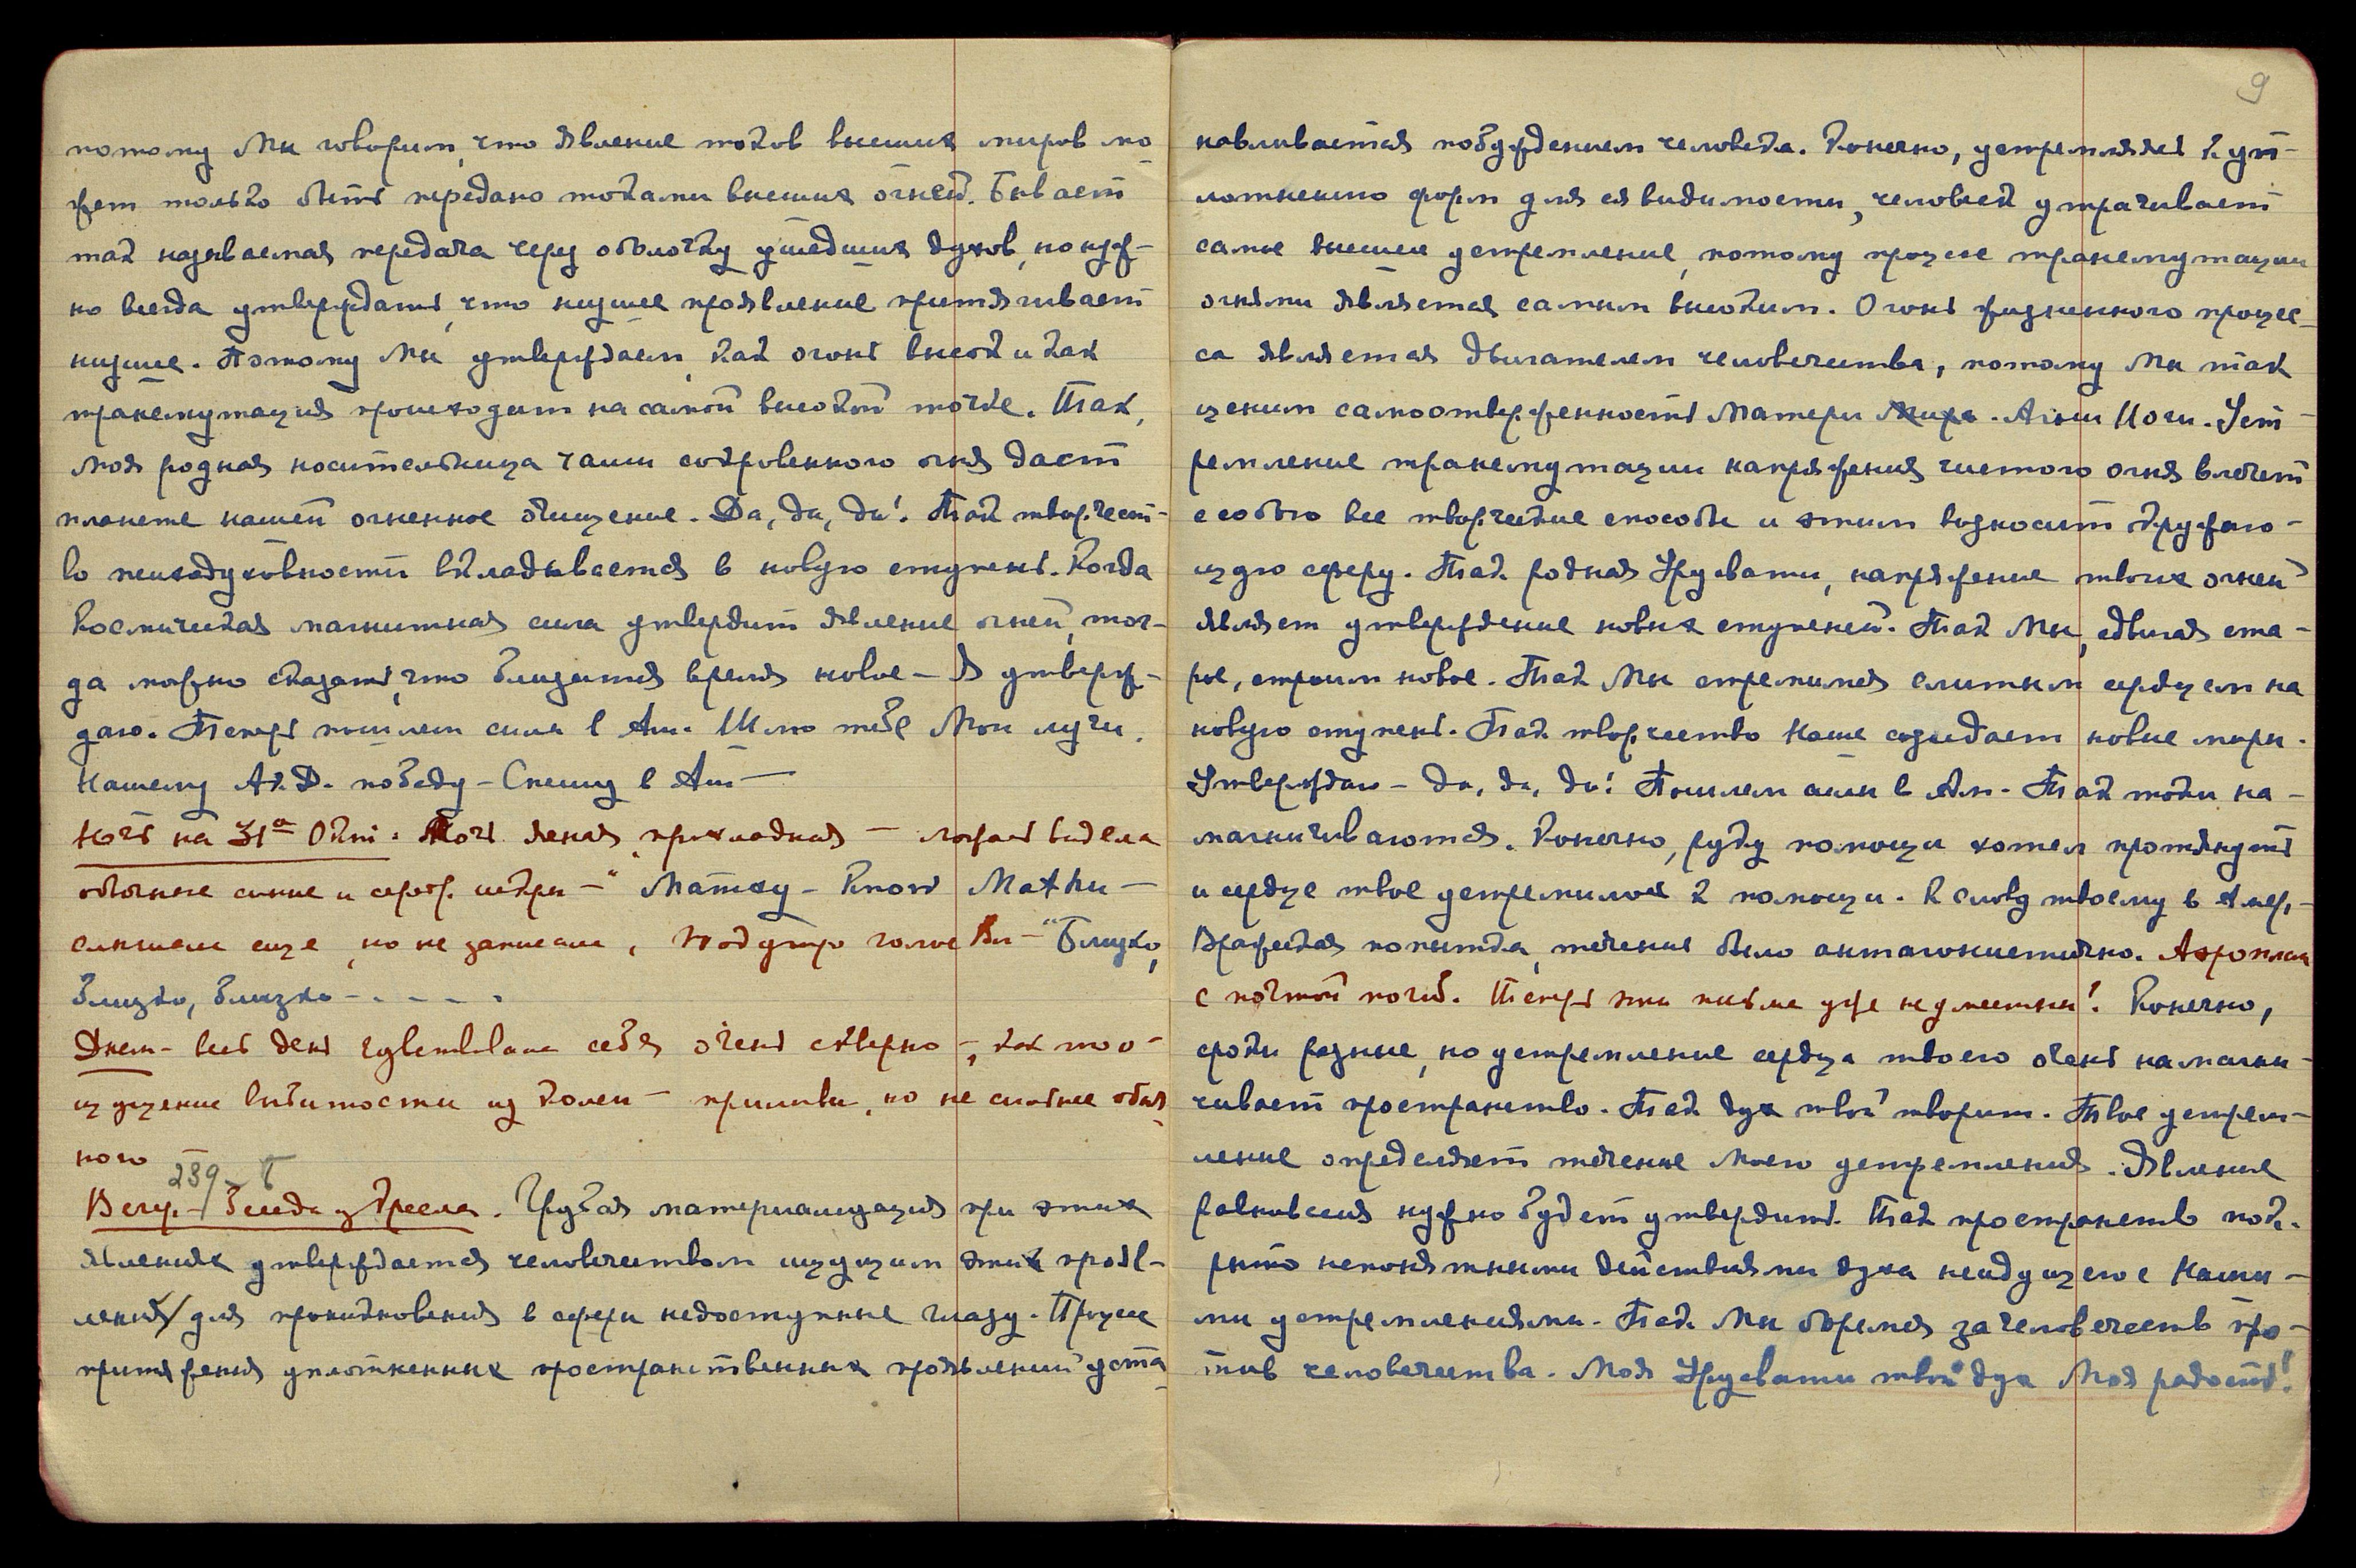 потому Мы говорим, что явление токов высших миров мо-
жет только быть передано токами высших огней. Бывает
так называемая передача через оболочку ушедших духов, но нуж-
но всегда утверждать, что низшее проявление притягивает
низшее. Потому Мы утверждаем, как огонь высок и как
трансмутация происходит на самой высокой точке. Так,
моя родная носительница чаши сокровенного огня даст
планете нашей огненное очищение. Да, да, да! Так творчест-
во психодуховности вкладывается в новую ступень. Когда
Космическая магнитная сила утвердит явление огней, тог-
да можно сказать, что близится время новое – Я утверж-
даю. Теперь пошлем силы в Ам. Шлю тебе Мои лучи.
Нашему Ак.Д. победу – Спешу в Аш –
Ночь на 31ое Окт. Ночь ясная, прохладная – лежа видела
обычные синие и сереб. искры – "Матсу – Know Mathu –
слышала еще, но не записала, под утро голос Вл – "Близко,
близко, близко – . – – – .
Днем – весь день чувствовала себя очень скверно –, как то о-
щущение выбитости из колеи – приливы, но не сильнее обыч-
ного –
239 – б
Вечер. – Беседа у кресла. Грубая материализация при этих
явлениях утверждается человечеством ищущим этих прояв-
лений/ для проникновения в сферы недоступные глазу. Процесс
притяжения уплотненных пространственных проявлений уста-
9
навливается побуждением человека. Конечно, устремляясь к уп-
лотнению форм для ея видимости, человек утрачивает
самое высшее устремление, потому процесс трансмутации
огнями является самым высоким. Огонь жизненного процес-
са является двигателем человечества, потому Мы так
ценим самоотверженность Матери Агни Йоги. Уст-
ремление трансмутации напряжения чистого огня влечет
с собою все творческие способы и этим возносит окружаю-
щую сферу. Так родная Урусвати, напряжение твоих огней
являет утверждение новых ступеней. Так Мы, сдвигая ста-
рое, строим новое. Так Мы стремимся слитным сердцем на
новую ступень. Так творчество Наше созидает новые миры.
Утверждаю – да, да, да! Пошлем силы в Ам. – Так токи на-
магничиваются. Конечно, руку помощи хотел протянуть
и сердце твое устремилось к помощи. К слову твоему в Амер. –
Вражеская попытка, течение было антагонистично. Аэроплан
с почтой погиб. Теперь эти письма уже неуместны! Конечно,
сроки разные, но устремление сердца твоего очень намагни-
чивает пространство. Так дух твой творит. Твое устрем-
ление определяет течение Моего устремления. Явление
равновесия нужно будет утвердить. Так пространство пок-
рыто непонятными действиями духа неидущего с Наши-
ми устремлениями. Так Мы боремся за человечество про-
тив человечества. Моя Урусвати твой дух Моя радость!